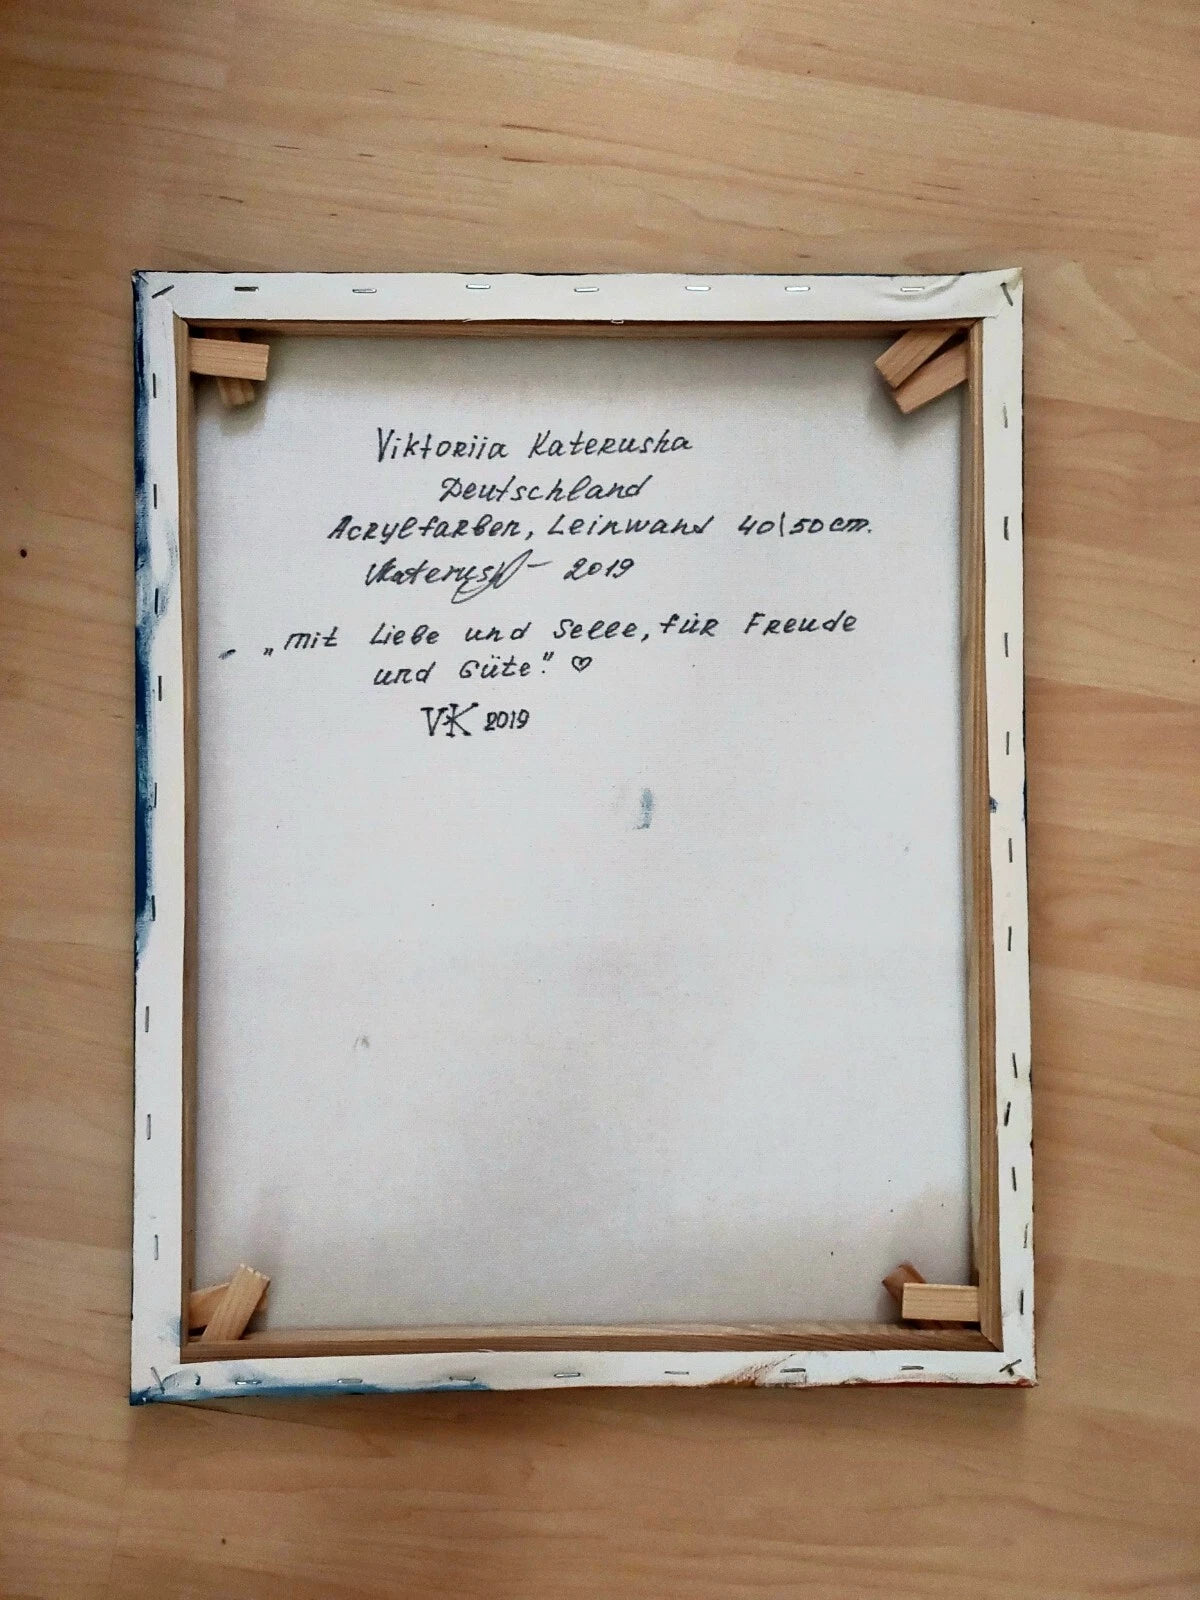 Viktoriia Katerusha
Deutschland
Acrylfarben, Leinwand 40\50 cm.
VKaterush – 2019
„mit Liebe und Selle, für Freude
und Güte." ♡
VK 2019